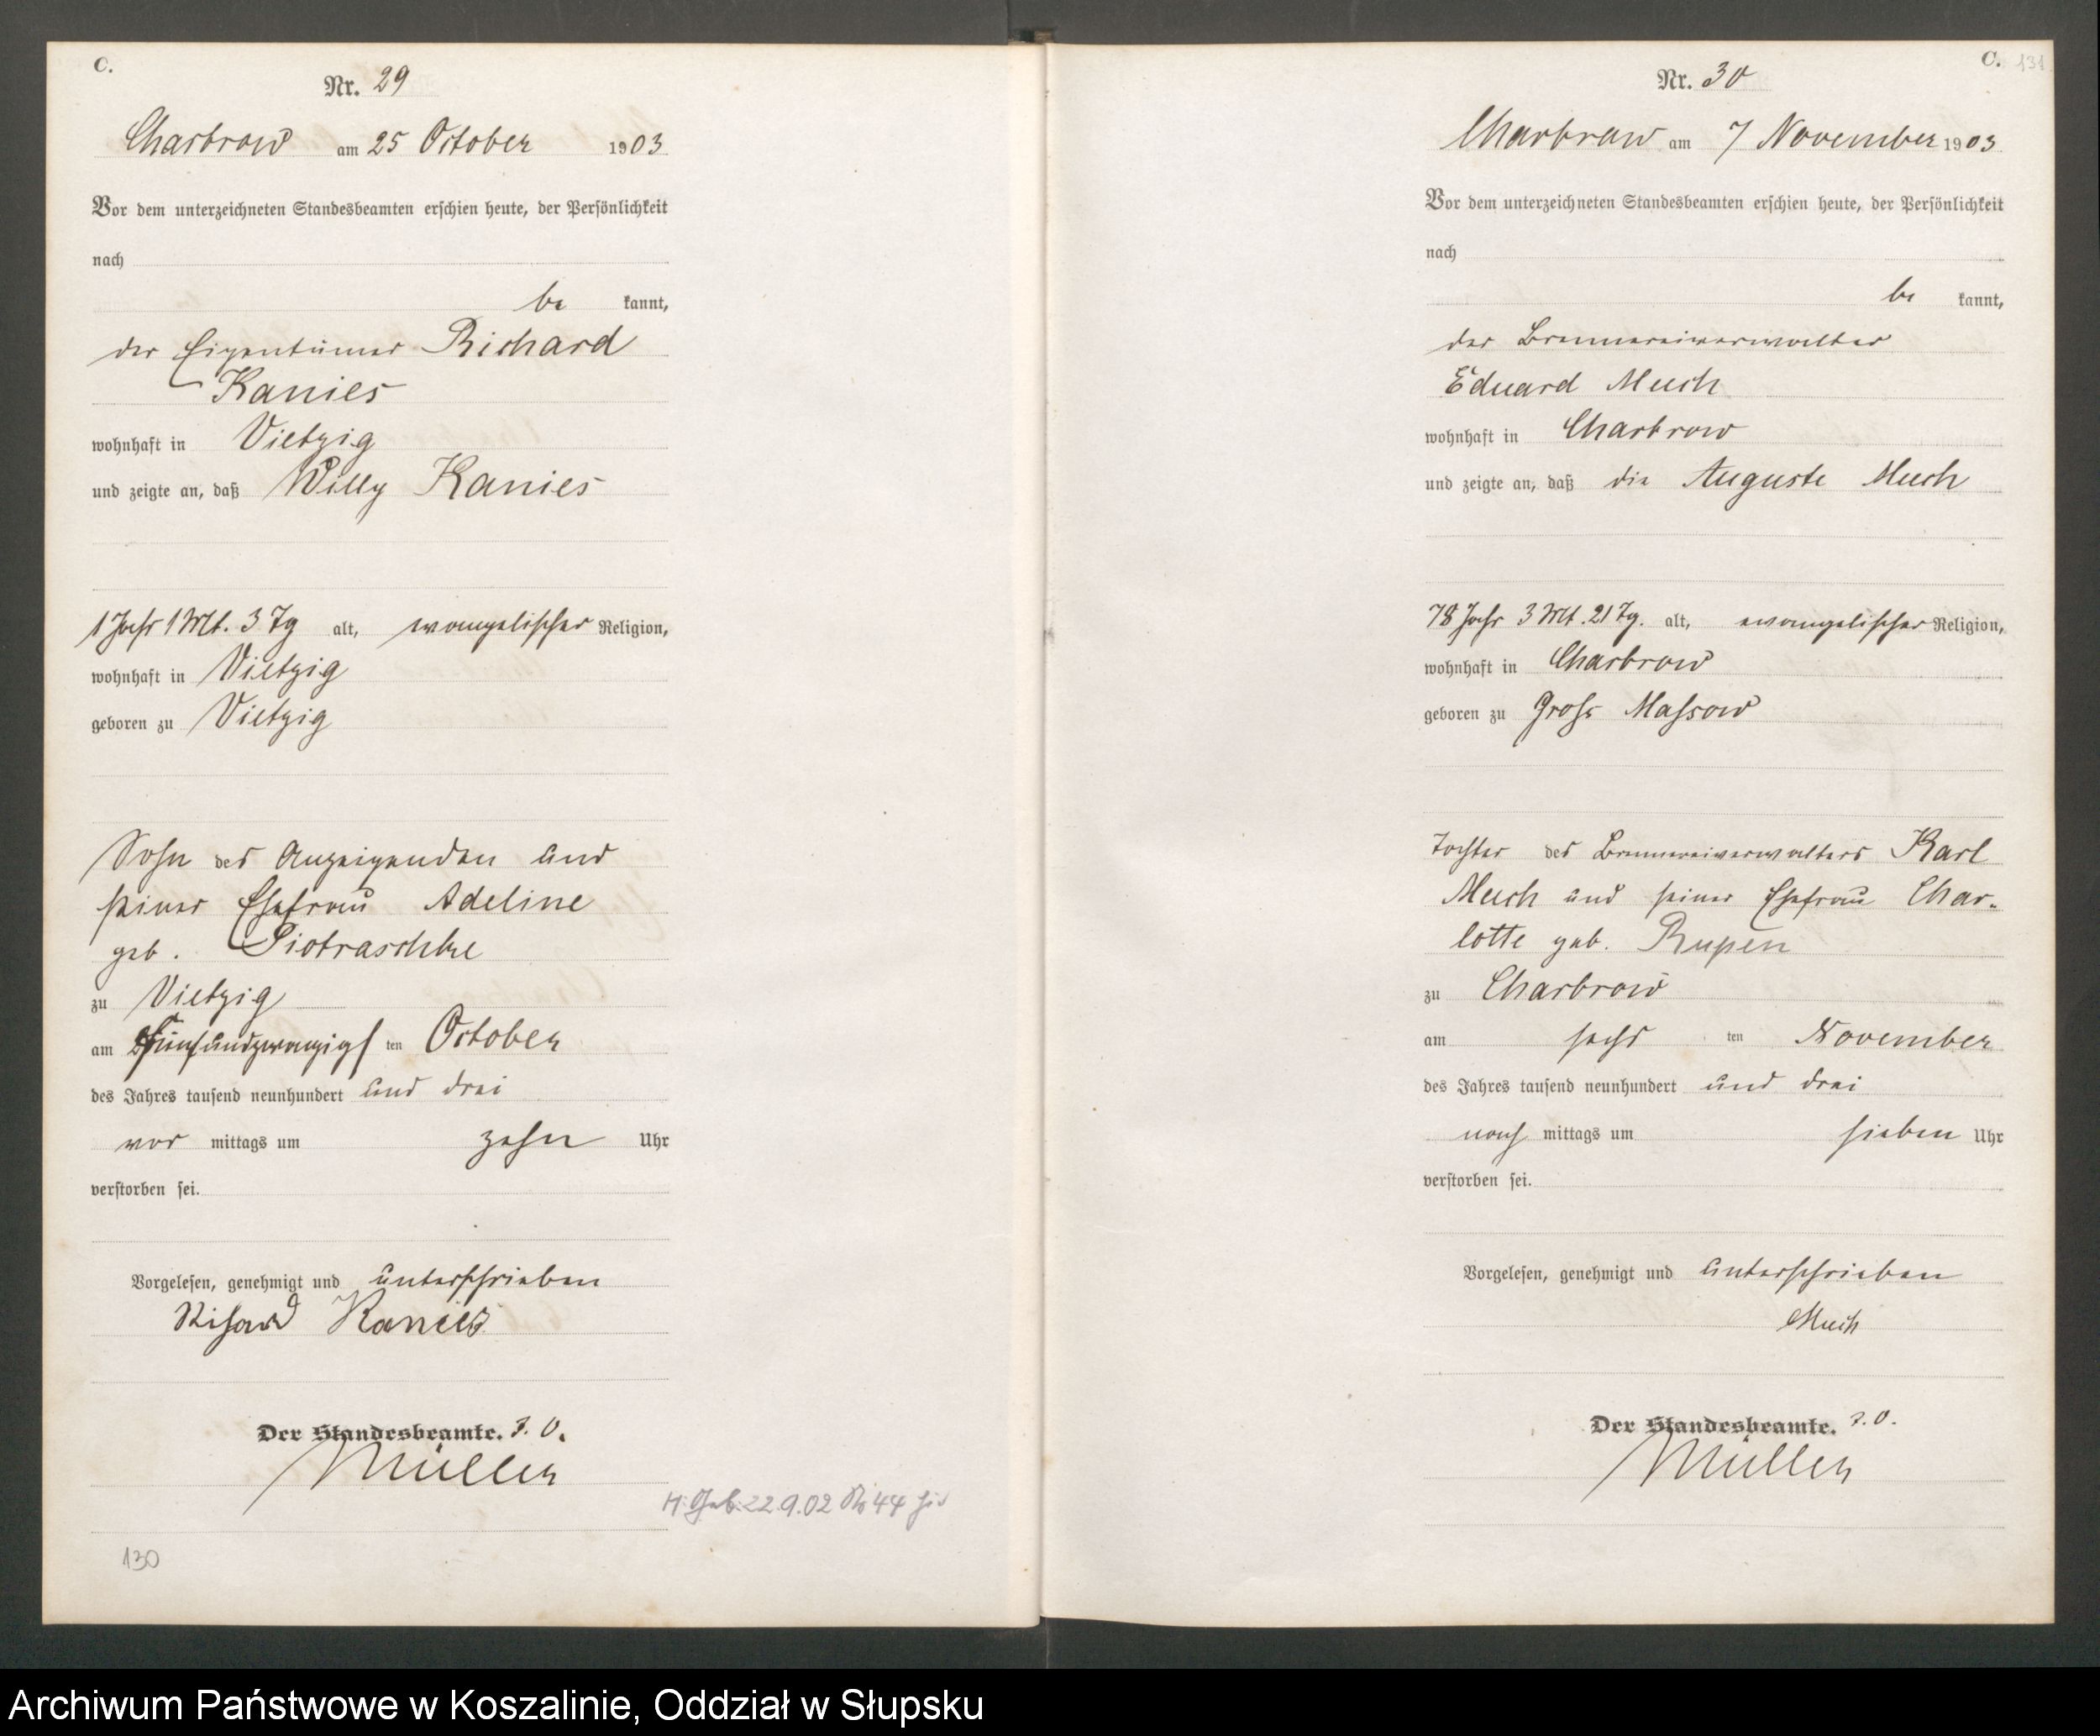 C.
Nr. 29
Charbrow am 25 October 1903
Vor dem unterzeichneten Standesbeamten erschien heute, der Persönlichkeit
nach
be kannt,
der Eigentümer Richard
Kanies
wohnhaft in Vietzig
und zeigte an, daß Willy Kanies
1 Jahr 1 Mt. 3 Tg alt, evangelischer Religion,
wohnhaft in Vietzig
geboren zu Vietzig
Sohn des Anzeigenden und
seiner Ehefrau Adeline
geb. Piotraschke
zu Vietzig
am fünfundzwanzigs ten October
des Jahres tausend neunhundert und drei
vor mittags um zehn Uhr
verstorben sei.
Vorgelesen, genehmigt und unterschrieben
Richard Kanies
Der Standesbeamte. J. V.
Müller
H. Geb. 22.9.02 Nr 44 hier
130
C. 131
Nr. 30
Charbrow am 7 November 1903
Vor dem unterzeichneten Standesbeamten erschien heute, der Persönlichkeit
nach
be kannt,
der Brennereiverwalter
Eduard Much
wohnhaft in Charbrow
und zeigte an, daß die Auguste Much
78 Jahr 3 Mt. 21 Tg. alt, evangelischer Religion,
wohnhaft in Charbrow
geboren zu Gross Massow
Tochter des Brennereiverwalters Karl
Much und seiner Ehefrau Char-
lotte geb. Rupen
zu Charbrow
am sechs ten November
des Jahres tausend neunhundert und drei
nach mittags um sieben Uhr
verstorben sei.
Vorgelesen, genehmigt und unterschrieben
Much
Der Standesbeamte. J. V.
Müller
Archiwum Państwowe w Koszalinie, Oddział w Słupsku